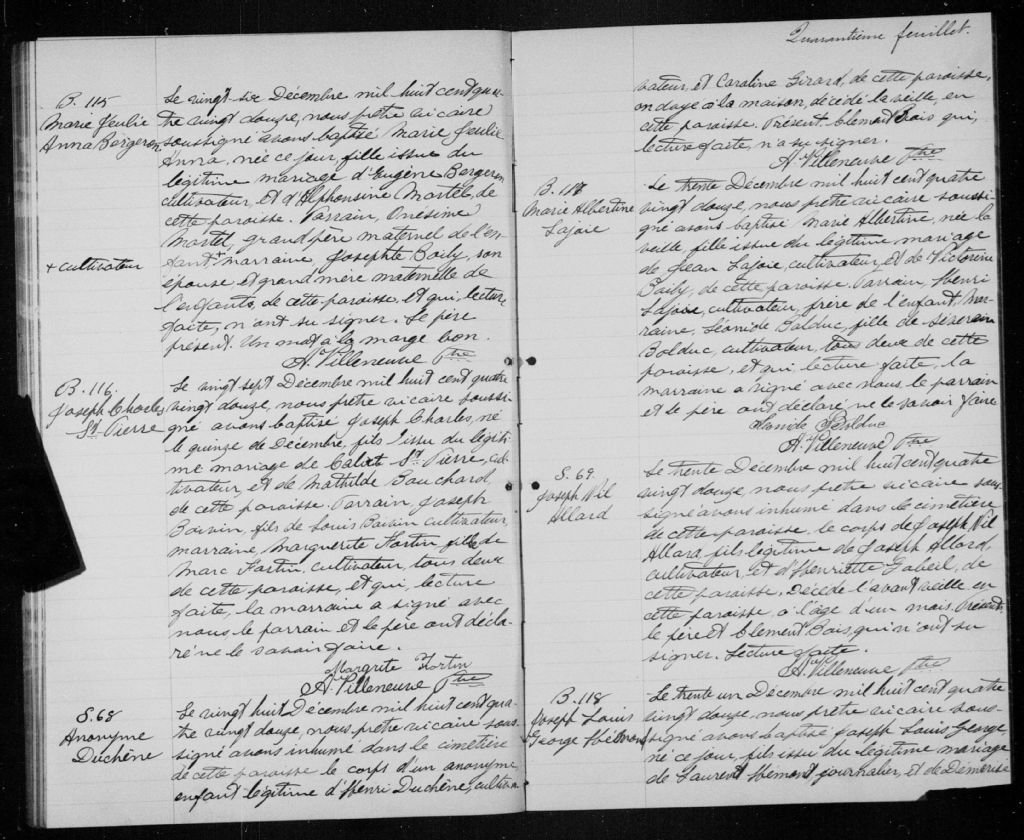 B. 115
Marie Jeulie
Anna Bergeron
Le vingt-six Décembre mil huit cent qua-
tre vingt douze, nous prêtre vicaire
soussigné avons baptisé Marie Jeulie
Anna, née ce jour, fille issue du
légitime mariage d'Eugène Bergeron
cultivateur, et d'Alphonsine Martel, de
cette paroisse. Parrain, Onésime
Martel, grand père maternel de l'en-
fant + marraine, Josephte Boily, son
+ cultivateur
épouse et grand mère maternelle de
l'enfants, de cette paroisse, et qui, lecture
faite, n'ont su signer. Le père
présent. Un mot à la marge bon.
A. Villeneuve Ptre
B. 116.
Joseph Charles
St Pierre
Le vingt sept Décembre mil huit cent quatre
vingt douze, nous prêtre vicaire soussi-
gné avons baptisé Joseph Charles, né
le quinze de Décembre, fils issu du légiti-
me mariage de St Pierre, cul-
tivateur, et de Mathilde Bouchard
de cette paroisse. Parrain, Joseph
Boivin, fils de Louis Boivin cultivateur,
marraine, Marguerite Fortin fille de
Marc Fortin, cultivateur, tous deux
de cette paroisse, et qui, lecture
faite, la marraine a signé avec
nous le parrain et le père ont décla-
ré ne le savoir faire.
Margrite Fortin
A. Villeneuve Ptre
S. 68
Anonyme
Duchêne
Le vingt huit Décembre mil huit cent qua-
tre vingt douze, nous prêtre vicaire sous-
signé avons inhumé dans le cimetière
de cette paroisse le corps d'un anonyme
enfant légitime d'Henri Duchêne, cultiva-
Quarantième feuillet.
vateur, et Caroline Girard, de cette paroisse,
ondoyé à la maison, décédé la veille, en
cette paroisse. Présent. Clément Bois qui,
lecture faite, n'a su signer.
A. Villeneuve Ptre
B. 117
Marie Albertine
Lajoie
Le trente Décembre mil huit cent quatre
vingt douze, nous prêtre vicaire soussi-
gné avons baptisé Marie Albertine, née la
veille fille issue du légitime mariage
de Jean Lajoie, cultivateur et de Victorine
Boily, de cette paroisse. Parrain, Henri
Lajoie, cultivateur, frère de l'enfant, mar-
raine, Léonide Bolduc, fille de Séverin
Bolduc, cultivateur, tous deux de cette
paroisse, et qui lecture faite, la
marraine a signé avec nous le parrain
et le père ont déclaré ne le savoir faire
Bolduc
A. Villeneuve Ptre
S. 69
Joseph Wil
Allard
Le trente Décembre mil huit cent quatre
vingt douze, nous prêtre vicaire sous-
signé avons inhumé dans le cimetière
de cette paroisse. le corps de Joseph Wil
Allard, fils légitime de Joseph Allard,
cultivateur, et d'Henriette de
cette paroisse. Décédé l'avant veille en
cette paroisse, à l'âge d'un mois. Présents,
le père et Clement Bois, qui n'ont su
signer. Lecture faite.
A. Villeneuve Ptre
B. 118
Joseph Louis
George Hémond
Le trente un Décembre mil huit cent quatre
vingt douze, nous prêtre vicaire sous-
signé avons baptisé Joseph Louis George,
né ce jour, fils issu du légitime mariage
de Laurent Hémond journalier, et de Démerise